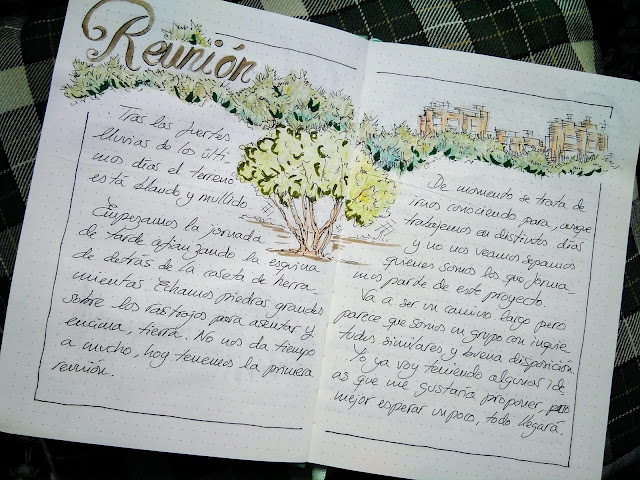 Reunión
Tras las fuertes
lluvias de los últi-
mos días el terreno
está blando y mullido.
Empezamos la jornada
de tarde afianzando la esquina
de detrás de la caseta de herra-
mientas. Echamos piedras grandes
sobre los rastrojos para asentar y
encima, tierra. No nos da tiempo
a mucho, hoy tenemos la primera
reunión.
De momento se trata de
irnos conociendo para, aunque
trabajemos en distintos días
y no nos veamos sepamos
quienes somos los que forma-
mos parte de este proyecto.
Va a ser un camino largo pero
parece que somos un grupo con inquie-
tudes similares y buena disposición.
Yo ya voy teniendo algunas ide-
as que me gustaría proponer, pero
mejor esperar un poco, todo llegará.